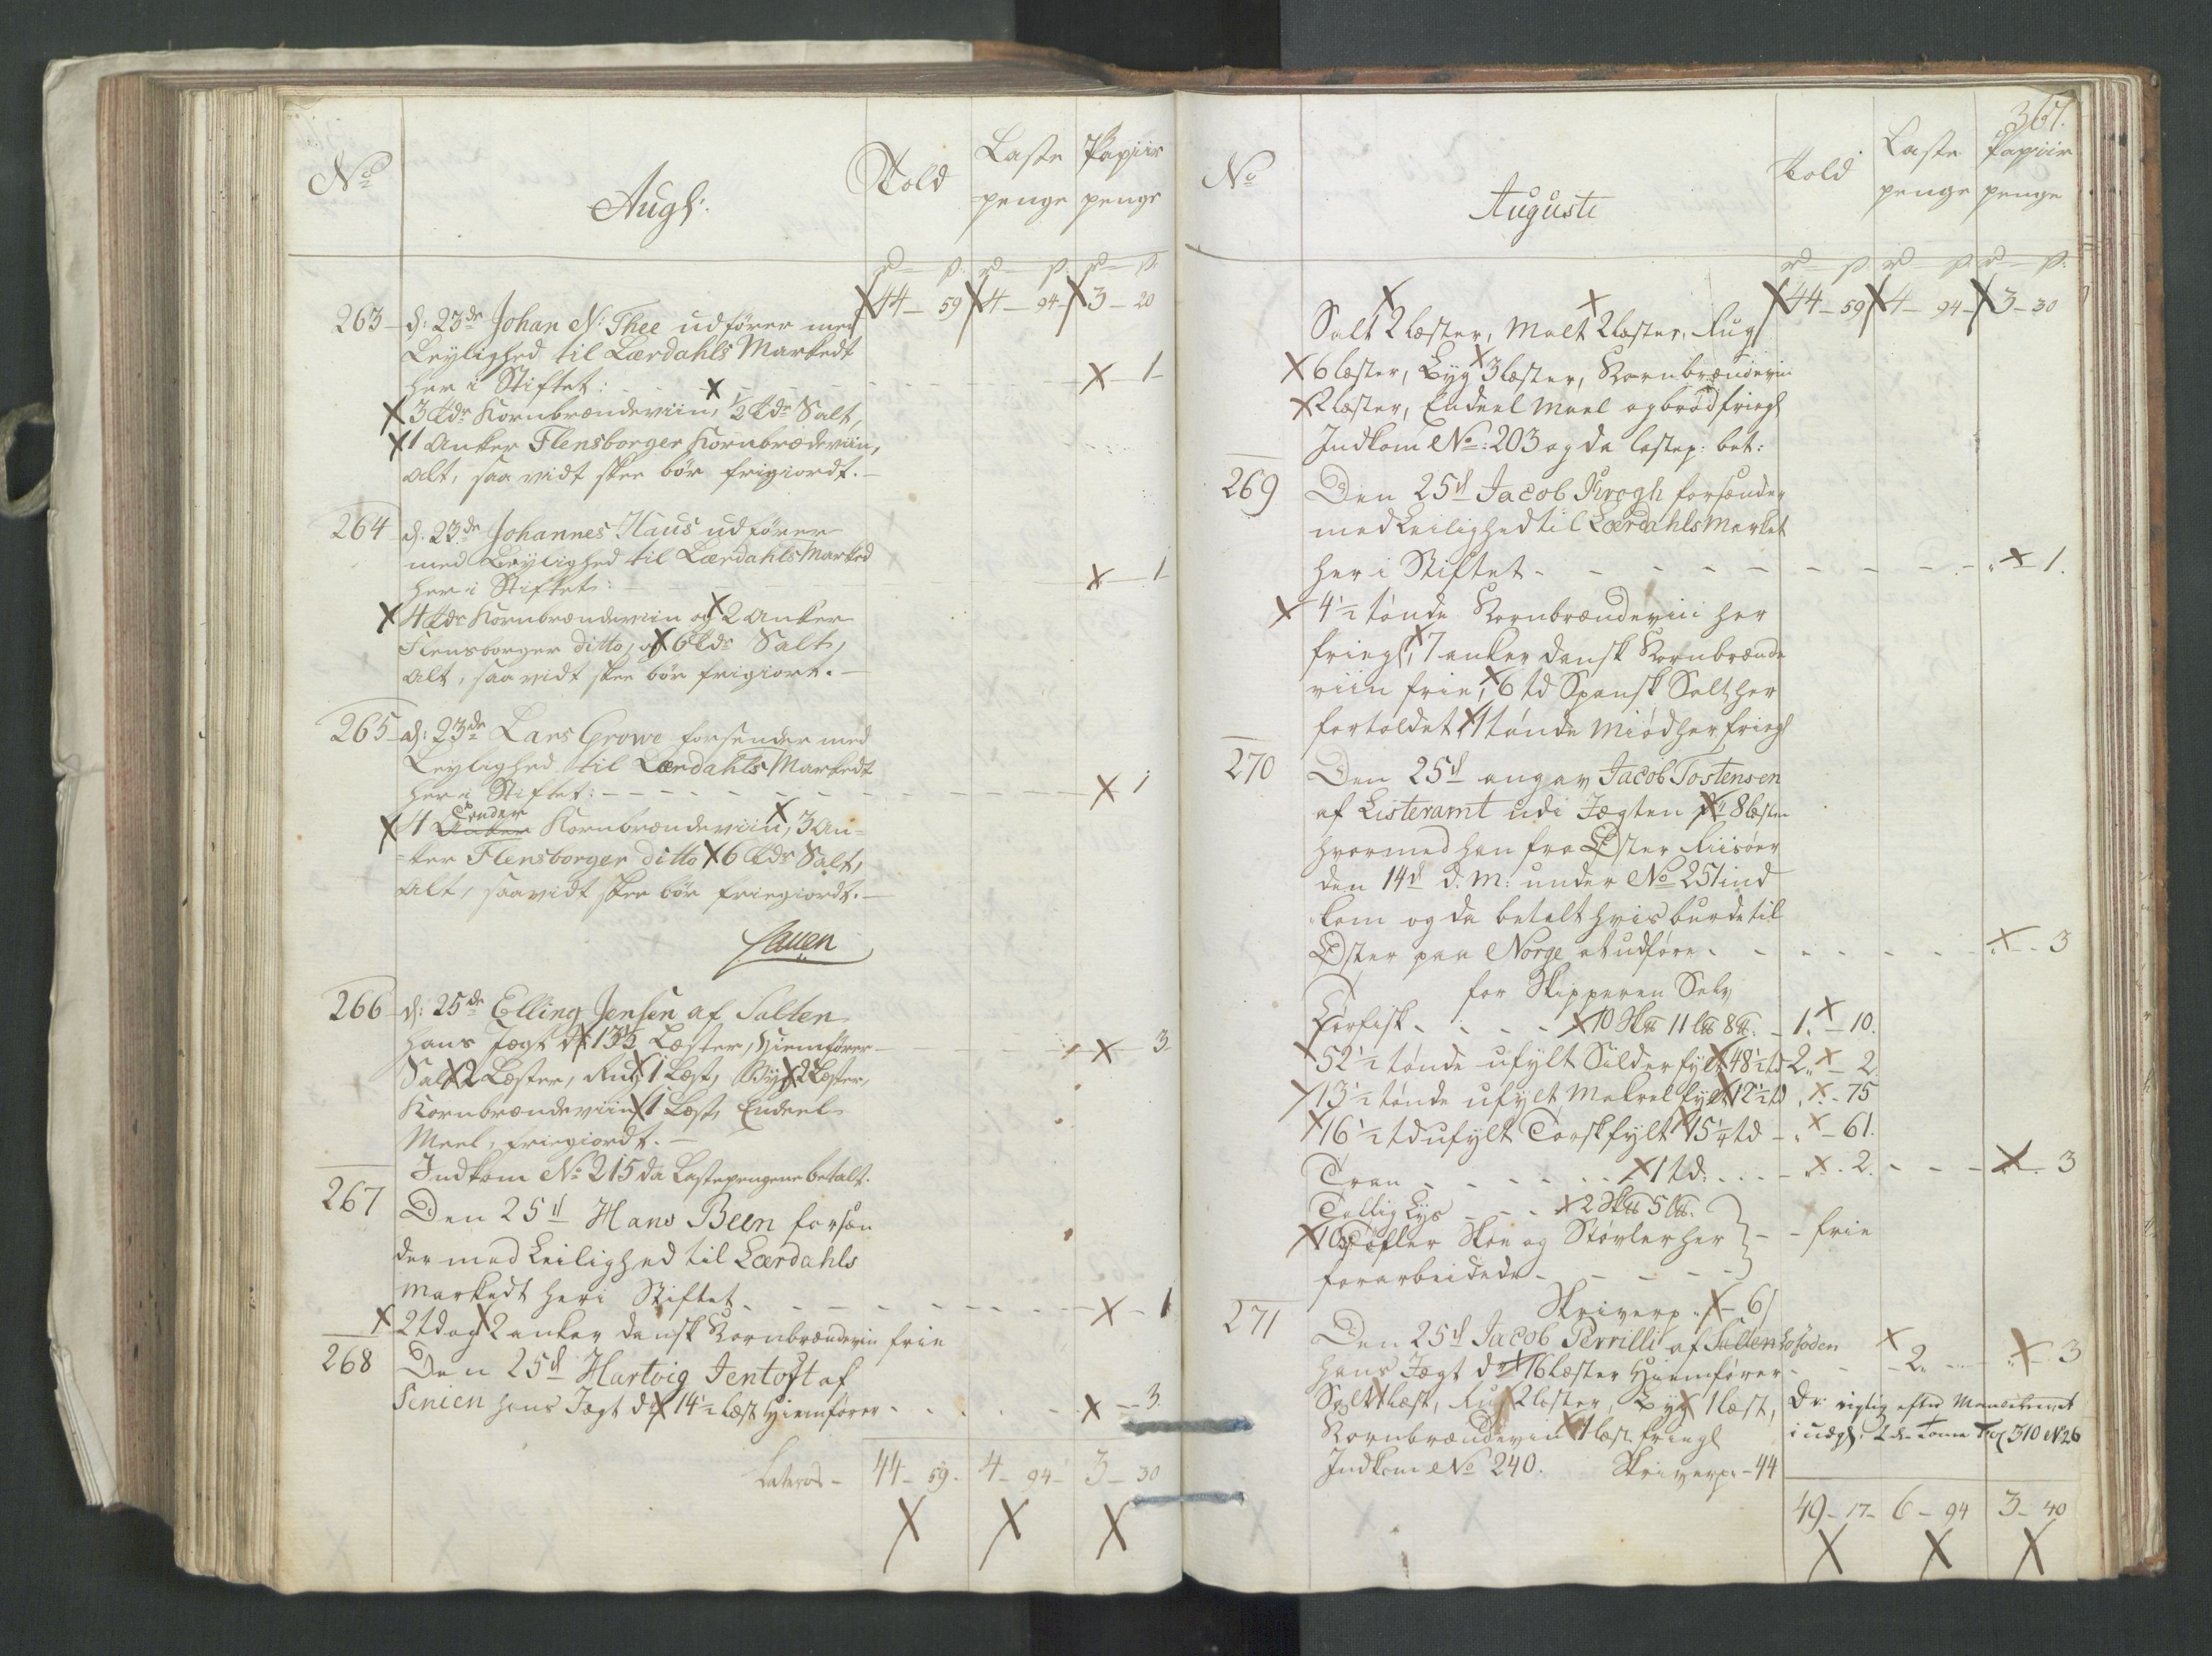 No
Augs:
Told
Laste penge
Papiir penge
rd ß rd ß rd ß
44 - 59 4 - 94 - 3 - 20
263 d: 23de Johan N: Thee udfører med
Leylighed til Lærdahls Markedt
her i Stiftet: 1
3 tdr Kornbrændeviin, ½ tdr Salt,
1 Anker Flensborger Kornbrædeviin,
alt, saa vidt skee bør frigiordt.
264 d. 23de Johannes Haus udfører
med Leylighed til Lærdahls Marked
her i Stiftet: 1
4 tdr Kornbrændeviin og 2 Anker
Flensborger ditto, og 6 tdr Salt,
alt, saa vidt skee bør frigiort.
265 d: 23de Lars Growe forsender med
Leylighed til Lærdahls Markedt
her i Stiftet: 1
Tønder
4 Anker Kornbrændeviin, 3 An-
=ker Flensborger ditto 6 tdr Salt,
alt, saavidt skee bør friegiordt.
266 d: 25de Elling Jensen af Salten
hans Jægt dr 13½ Læster, Hiemfører 3
Salt 2 Læster, Rug 1 Læst, Byg 2 Læster,
Kornbrændeviin 1 Læst, Endeel
Meel, friegiordt.
Indkom No 215 da Lastepengene betalt.
267 Den 25d Hans Been forsæn
der med Leilighed til Lærdahls
Markedt her i Stiftet 1
2 td og 2 anker dansk Kornbrændeviin frie
268 Den 25d Hartvig Jentoft af
Senien hans Jægt dr 14½ læst Hiemfører 3
Lateris - 44 - 59 - 4 - 94 - 3 - 30
367.
No
Augusti
Told
Laste penge
Papiir penge
rd ß rd ß rd ß
44 - 59 4 - 94 - 3 - 30
Salt 2 læster, Malt 2 læster, Rug
6 læster, Byg 3 læster, Kornbrændeviin
2 læster, Endeel Meel og brød friegl
Indkom No: 203 og da lastep: bet:
269 Den 25d Jacob Krogh forsænder
med Leilighed til Lærdahls Market
her i Stiftet 1.
4½ tønde Kornbrændeviin her
friegl, 7 anker dansk Kornbrænde
viin frie, 6 td Spansk Salt her
fortoldet 1 tønde Miød her friegl
270 Den 25d angav Jacob Tostensen
af Listeramt udi Jægten dr 8 læster
hvormed han fra Øster Riisøer
den 14d d. M: under No 251 ind
kom og da betalt hvis burde til
Øster paa Norge at udføre 3
for Skipperen Selv
Tørfisk 10 Sk℔ 11 l℔ 8 ℔. - 1. - 10.
52½ tønde ufylt Silder fylt 48½ td 2 - 2
13½ tønde ufylt Makrel fylt 12½ td - 75
16½ td ufylt Torsk fylt 15¼ td - 61.
Tran 1 td: 2. 3
Tallig Lys 2 Sk℔ 5 l℔.
10 Tøfler Skoe og Støvler her - - frie
forarbeidede
Skriverp: - 6
271 Den 25d Jacob Perrilli af Salten Lofoden
hans Jægt dr 16 læster Hiemfører 2 3
Salt 1 læst, Rug 2 læster, Byg 1 læst,
Kornbrændeviin 1 læst. friegl
Indkom No 240. Skriverp: - 44
Dr: rigtig efter
310 No 26
49 - 17 - 6 - 94 3 - 40